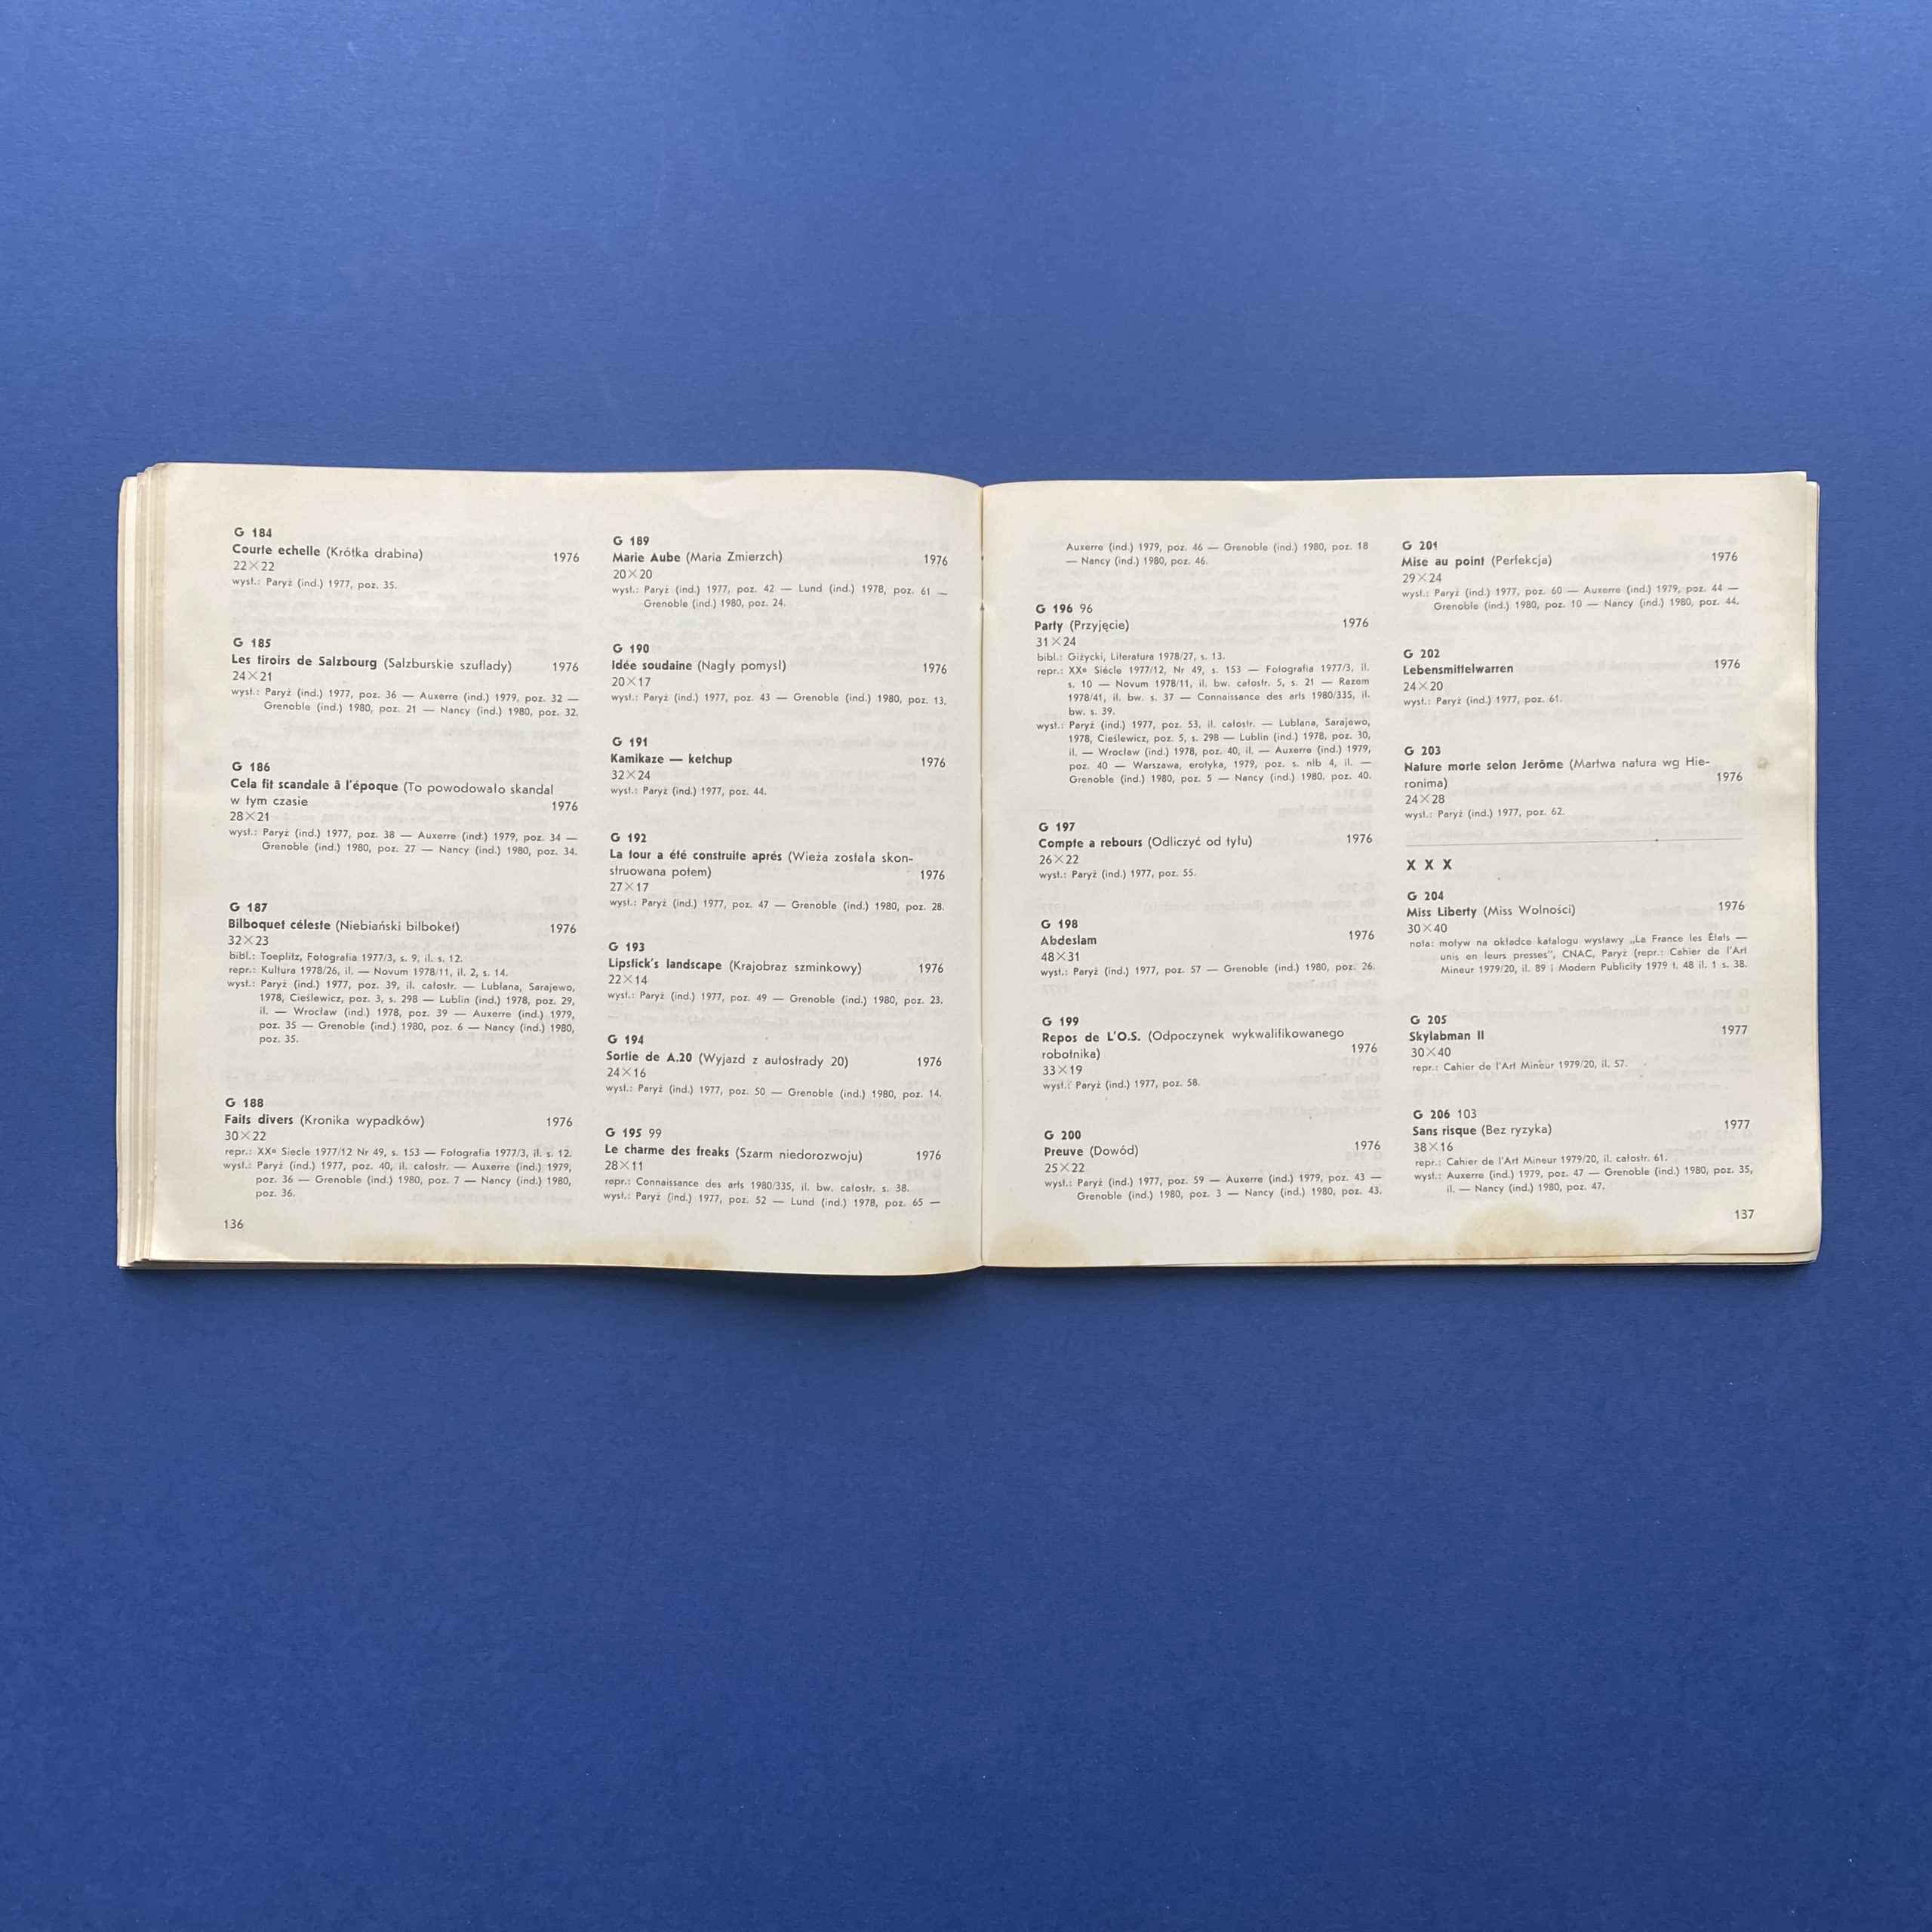 G 184
Courte echelle (Krótka drabina) 1976
22×22
wyst.: Paryż (ind.) 1977, poz. 35.
G 185
Les tiroirs de Salzbourg (Salzburskie szuflady) 1976
24×21
wyst.: Paryż (ind.) 1977, poz. 36 — Auxerre (ind.) 1979, poz. 32 —
Grenoble (ind.) 1980, poz. 21 — Nancy (ind.) 1980, poz. 32.
G 186
Cela fit scandale â l'époque (To powodowało skandal
w tym czasie 1976
28×21
wyst.: Paryż (ind.) 1977, poz. 38 — Auxerre (ind.) 1979, poz. 34 —
Grenoble (ind.) 1980, poz. 27 — Nancy (ind.) 1980, poz. 34.
G 187
Bilboquet céleste (Niebiański bilboket) 1976
32×23
bibl.: Toeplitz, Fotografia 1977/3, s. 9, il. s. 12.
repr.: Kultura 1978/26, il. — Novum 1978/11, il. 2, s. 14.
wyst.: Paryż (ind.) 1977, poz. 39, il. całostr. — Lublana, Sarajewo,
1978, Cieślewicz, poz. 3, s. 298 — Lublin (ind.) 1978, poz. 29,
il. — Wrocław (ind.) 1978, poz. 39 — Auxerre (ind.) 1979,
poz. 35 — Grenoble (ind.) 1980, poz. 6 — Nancy (ind.) 1980,
poz. 35.
G 188
Faits divers (Kronika wypadków) 1976
30×22
repr.: XXe Siecle 1977/12 Nr 49, s. 153 — Fotografia 1977/3, il. s. 12.
wyst.: Paryż (ind.) 1977, poz. 40, il. całostr. — Auxerre (ind.) 1979,
poz. 36 — Grenoble (ind.) 1980, poz. 7 — Nancy (ind.) 1980,
poz. 36.
136
G 189
Marie Aube (Maria Zmierzch) 1976
20×20
wyst.: Paryż (ind.) 1977, poz. 42 — Lund (ind.) 1978, poz. 61 —
Grenoble (ind.) 1980, poz. 24.
G 190
Idée soudaine (Nagły pomysł) 1976
20×17
wyst.: Paryż (ind.) 1977, poz. 43 — Grenoble (ind.) 1980, poz. 13.
G 191
Kamikaze — ketchup 1976
32×24
wyst.: Paryż (ind.) 1977, poz. 44.
G 192
La tour a été construite aprés (Wieża została skon-
struowana potem) 1976
27×17
wyst.: Paryż (ind.) 1977, poz. 47 — Grenoble (ind.) 1980, poz. 28.
G 193
Lipstick's landscape (Krajobraz szminkowy) 1976
22×14
wyst.: Paryż (ind.) 1977, poz. 49 — Grenoble (ind.) 1980, poz. 23.
G 194
Sortie de A.20 (Wyjazd z autostrady 20) 1976
24×16
wyst.: Paryż (ind.) 1977, poz. 50 — Grenoble (ind.) 1980, poz. 14.
G 195 99
Le charme des freaks (Szarm niedorozwoju) 1976
28×11
repr.: Connaissance des arts 1980/335, il. bw. całostr. s. 38.
wyst.: Paryż (ind.) 1977, poz. 52 — Lund (ind.) 1978, poz. 65 —
Auxerre (ind.) 1979, poz. 46 — Grenoble (ind.) 1980, poz. 18
— Nancy (ind.) 1980, poz. 46.
G 196 96
Party (Przyjęcie) 1976
31×24
bibl.: Giżycki, Literatura 1978/27, s. 13.
repr.: XXe Siécle 1977/12, Nr 49, s. 153 — Fotografia 1977/3, il.
s. 10 — Novum 1978/11, il. bw. całostr. 5, s. 21 — Razem
1978/41, il. bw. s. 37 — Connaissance des arts 1980/335, il.
bw. s. 39.
wyst.: Paryż (ind.) 1977, poz. 53, il. całostr. — Lublana, Sarajewo,
1978, Cieślewicz, poz. 5, s. 298 — Lublin (ind.) 1978, poz. 30,
il. — Wrocław (ind.) 1978, poz. 40, il. — Auxerre (ind.) 1979,
poz. 40 — Warszawa, erotyka, 1979, poz. s. nlb 4, il. —
Grenoble (ind.) 1980, poz. 5 — Nancy (ind.) 1980, poz. 40.
G 197
Compte a rebours (Odliczyć od tyłu) 1976
26×22
wyst.: Paryż (ind.) 1977, poz. 55.
G 198
Abdeslam 1976
48×31
wyst.: Paryż (ind.) 1977, poz. 57 — Grenoble (ind.) 1980, poz. 26.
G 199
Repos de L'O.S. (Odpoczynek wykwalifikowanego
robotnika) 1976
33×19
wyst.: Paryż (ind.) 1977, poz. 58.
G 200
Preuve (Dowód) 1976
25×22
wyst.: Paryż (ind.) 1977, poz. 59 — Auxerre (ind.) 1979, poz. 43 —
Grenoble (ind.) 1980, poz. 3 — Nancy (ind.) 1980, poz. 43.
G 201
Mise au point (Perfekcja) 1976
29×24
wyst.: Paryż (ind.) 1977, poz. 60 — Auxerre (ind.) 1979, poz. 44 —
Grenoble (ind.) 1980, poz. 10 — Nancy (ind.) 1980, poz. 44.
G 202
Lebensmittelwarren 1976
24×20
wyst.: Paryż (ind.) 1977, poz. 61.
G 203
Nature morte selon Jerôme (Martwa natura wg Hie-
ronima) 1976
24×28
wyst.: Paryż (ind.) 1977, poz. 62.
X X X
G 204
Miss Liberty (Miss Wolności) 1976
30×40
nota: motyw na okładce katalogu wystawy „La France les États —
unis en leurs presses", CNAC, Paryż (repr.: Cahier de l'Art
Mineur 1979/20, il. 89 i Modern Publicity 1979 t. 48 il. 1 s. 38.
G 205
Skylabman II 1977
30×40
repr.: Cahier de l'Art Mineur 1979/20, il. 57.
G 206 103
Sans risque (Bez ryzyka) 1977
38×16
repr.: Cahier de l'Art Mineur 1979/20, il. całostr. 61.
wyst.: Auxerre (ind.) 1979, poz. 47 — Grenoble (ind.) 1980, poz. 35,
il. — Nancy (ind.) 1980, poz. 47.
137